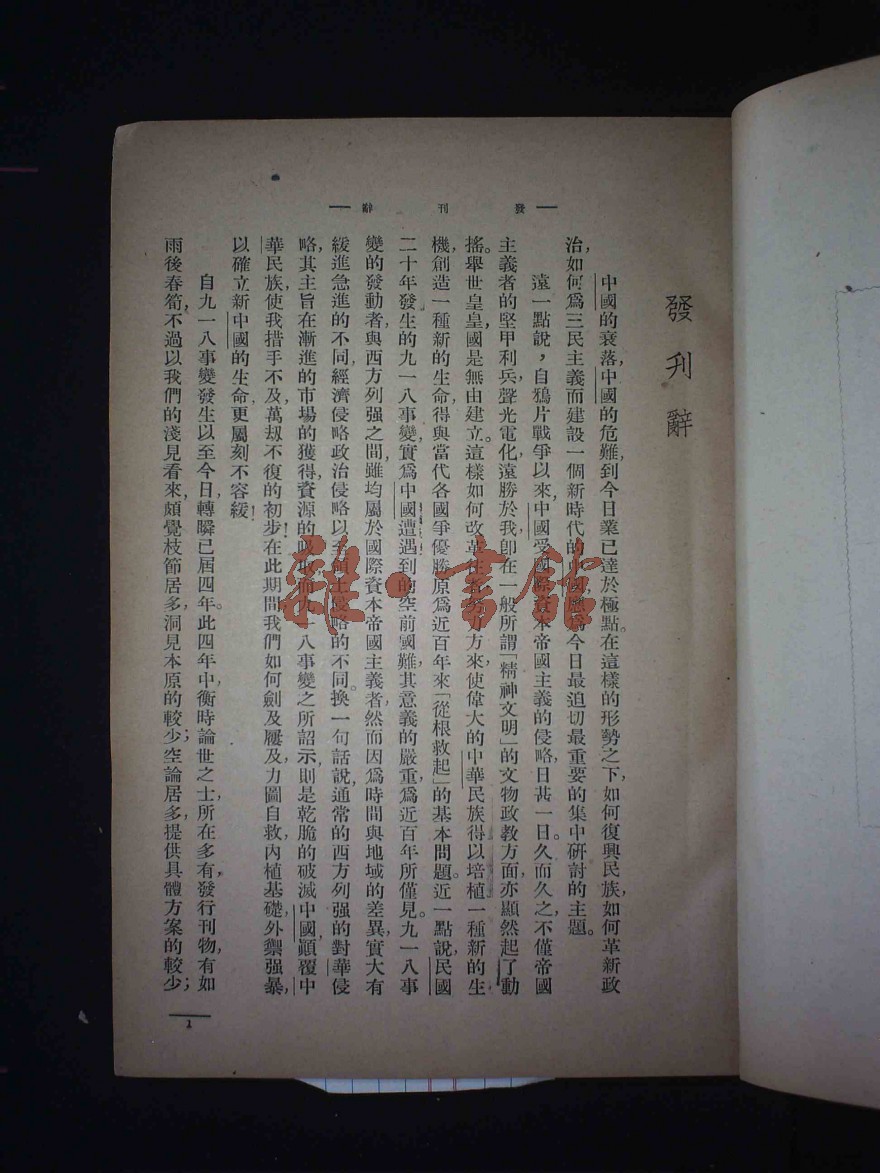 發刊辭
發刊辭
中國的衰落,中國的危難,到今日業已達於極點。在這樣的形勢之下,如何復興民族,如何革新政
治,如何爲三民主義而建設一個新時代的中國,應爲今日最迫切最重要的集中研討的主題。
遠一點說,自鴉片戰爭以來,中國受國際資本帝國主義的侵略,日甚一日。久而久之,不僅帝國
主義者的堅甲利兵,聲光電化,遠勝於我,卽在一般所謂「精神文明」的文物政教方面,亦顯然起了動
搖。舉世皇皇,國是無由建立。這樣如何改革方來,使偉大的中華民族得以培植一種新的生
機,創造一種新的生命,得與當代各國爭優勝,原爲近百年來「從根救起」的基本問題。近一點說,民國
二十年發生的九一八事變,實爲中國遭遇到的空前國難,其意義的嚴重,爲近百年所僅見。九一八事
變的發動者,與西方列强之間,雖均屬於國際資本帝國主義者,然而因爲時間與地域的差異,實大有
緩進急進的不同,經濟侵略政治侵略以至領土侵略的不同。換一句話說,通常的西方列强的對華侵
略,其主旨在漸進的市場的獲得,資源的吸收,而九一八事變之所詔示,則是乾脆的破滅中國,顚覆中
華民族,使我措手不及,萬刼不復的初步!在此期間,我們如何劍及屨及,力圖自救,內植基礎,外禦强暴,
以確立新中國的生命,更屬刻不容緩!
自九一八事變發生以至今日,轉瞬已屆四年。此四年中,衡時論世之士,所在多有,發行刊物,有如
雨後春筍,不過以我們的淺見看來,頗覺枝節居多,洞見本原的較少;空論居多,提供具體方案的較少;
1
雜·書館